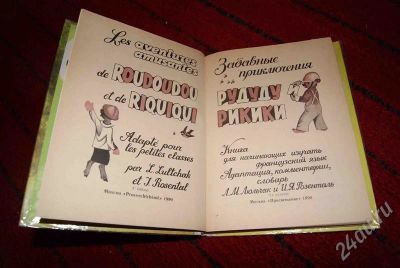 Les aventures
amusantes
de ROUDOUDOU
et de RIQUIQUI
Adapté pour
les petites classes
par L. Lultchak
et I. Rosental
Moscou «Prosvéchtchénié» 1990
Забавные
приключения
РУДУДУ
и
РИКИКИ
Книга
для начинающих изучать
французский язык
Адаптация, комментарии,
словарь
Л.М. Люльчак и И.Я. Розенталь
Москва «Просвещение» 1990
24au.ru